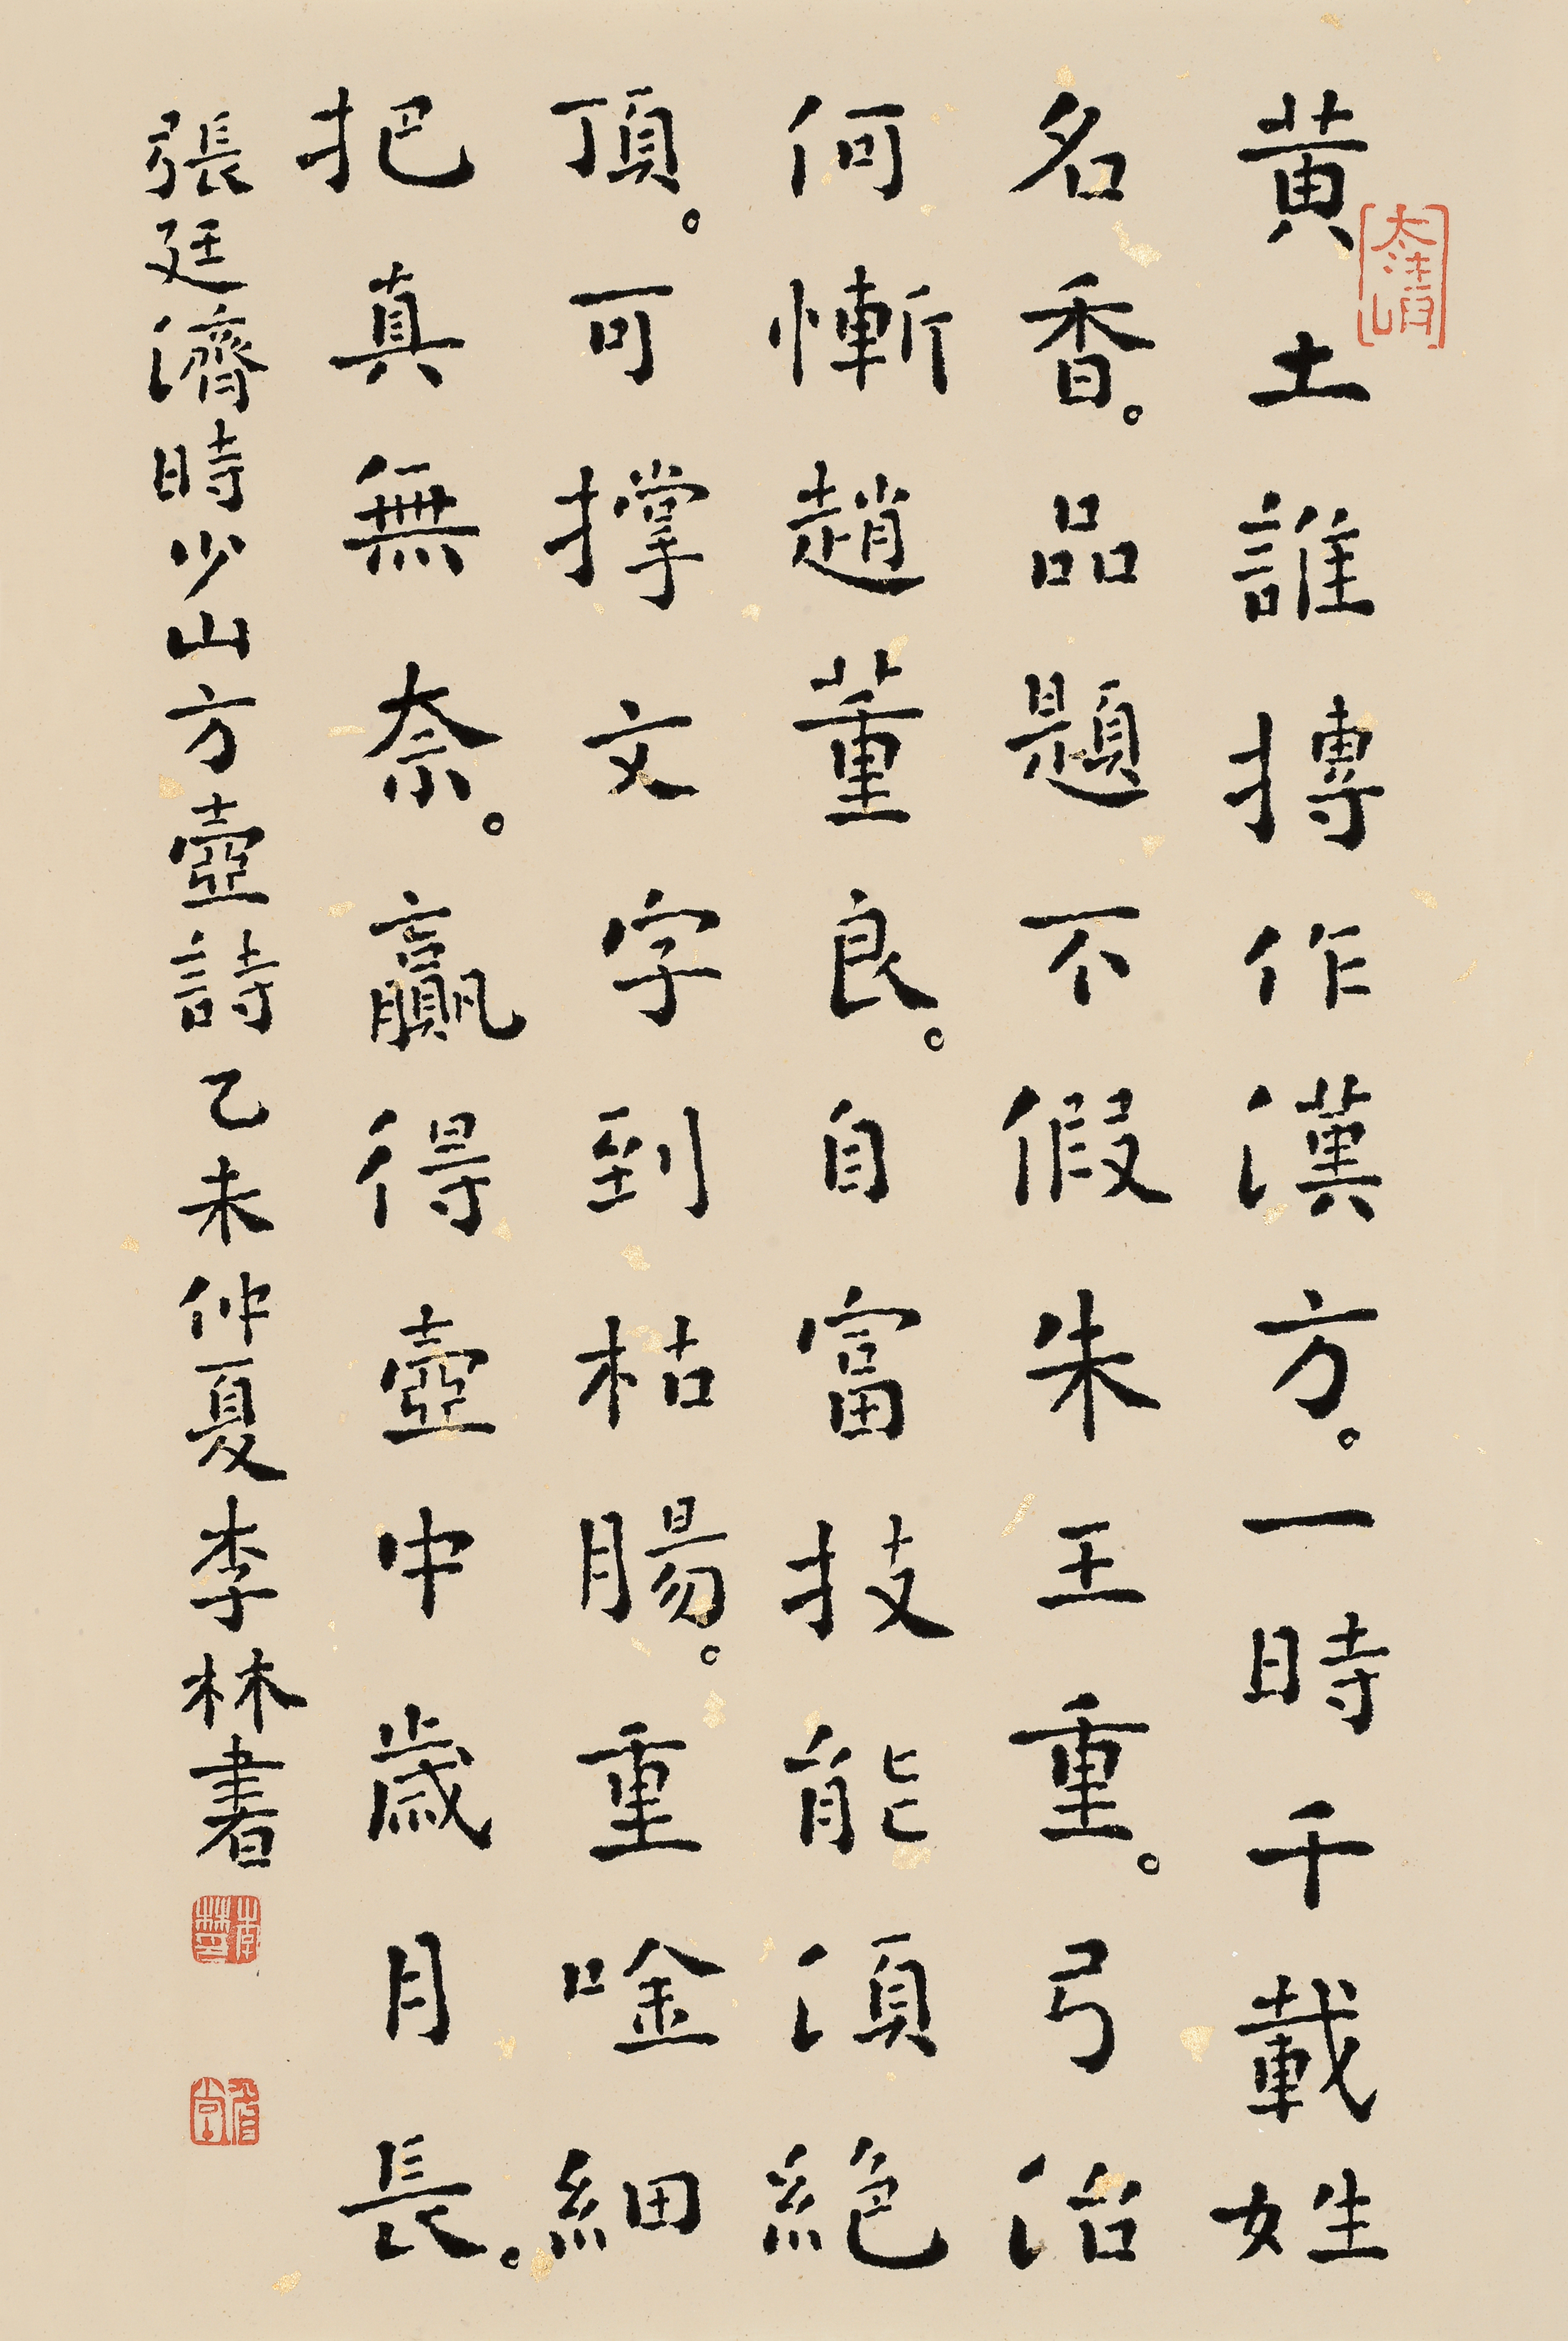 黃土誰摶作漢方。一時千載姓
名香。品題不假朱王重。弓治
何慚趙董良。自富技能須絕
頂。可撐文字到枯腸。重唫細
把真無奈。贏得壺中歲月長。
張廷濟時少山方壺詩乙未仲夏李林書